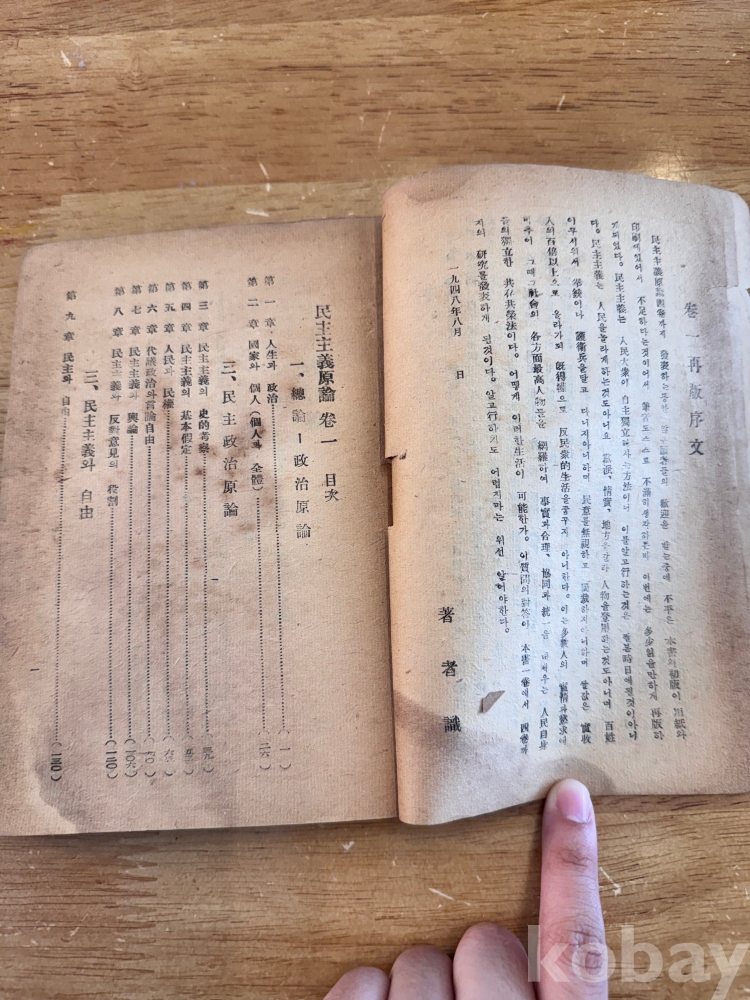 卷一再版序文
民主主義原論四卷까지 發表하는동안 歡迎을 받는중에 不平은 本書의初版이 用紙와
印刷에있어서 不足하다는것이어서 筆者도스스로 不滿히생각하든바 이번에는 多少읽을만하게 再版하
기되었다. 民主主義는 人民大衆이 自主獨立해사는方法이니 이를알고行하는것은
다. 民主主義는 人民을놀라게하는것도아니요 黨派、情實、地方을갈라 人物을登用하는것도아니며 百姓
이무서워서 拳銃이나 護衛兵을달고 다니지아니하며 民意를無視하고 쌀값은 實收
人의百倍以上으로 올라가되 旣得權으로 反民衆的生活을꿈꾸지 아니한다. 이는多數人의 實情과慾求에
비추어 그때그社會의 各方面最高人物들을 網羅하여 事實과合理、協同과統一을 내세우는 人民自身
들의獨立한 共存共榮法이다. 어떻게 이러한生活이 可能한가. 이質問의對答이 本書一卷에서 四卷까
지의 硏究를發表하게 된것이다. 알고行하기도 어렵지마는 위선 알어야한다.
一九四八年八月 日
著者識
民主主義原論 卷一 目次
一、總論ー政治原論
第一章 人生과 政治 (一)
第二章 國家와 個人(個人과 全體) (二六)
三、民主政治原論
第三章 民主主義의 史的考察
第四章 民主主義의 基本假定
第五章 人民과 民權
第六章 代議政治와言論自由
第七章 民主主義와 輿論 (一〇六)
第八章 民主主義와 反對意見의 役割 (一二〇)
三、民主主義와 自由
第九章 民主와 自由 (一三〇)
kobay